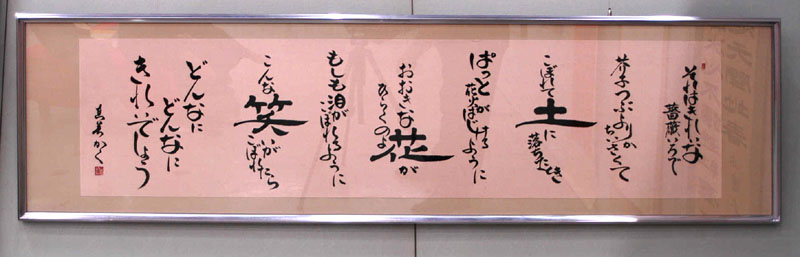 それはきれいな
薔薇いろで
芥子つぶよりか
ちいさくて
こぼれて
土に
落ちたとき
ぱっと
花火が
はじける
ように
おおきな
花が
ひらくのよ
もしも泪が
こぼれるように
こんな
笑いが
こぼれたら
どんなに
どんなに
きれいでしょう
かく